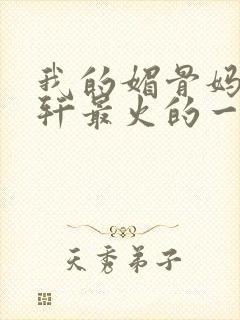 我的媚骨妈
轩最火的一
天秀弟子